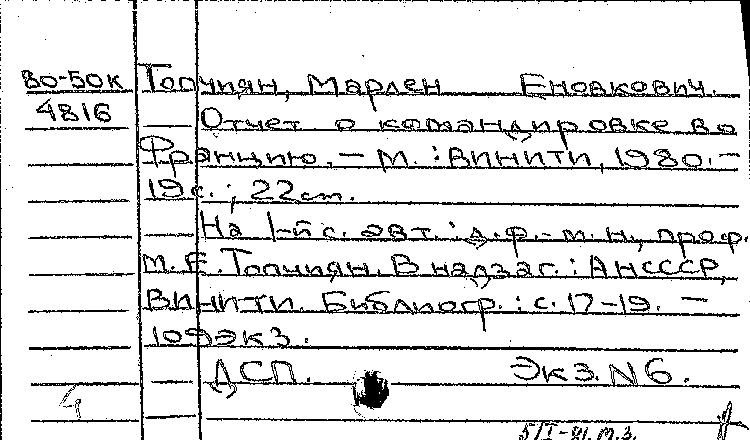 80-50к Топчиян, Марлен Еновкович.
4816 Отчет о командировке во
Францию. – М. : ВИНИТИ, 1980. –
19 с. ; 22 см.
На 1-й с. авт. : д.ф.-м.н., проф.
М.Е. Топчиян. В надзаг. : АН СССР,
ВИНИТИ. Библиогр. : с. 17-19. –
109 экз.
ДСП. Экз. N 6.
4
5/I-81. М.З.